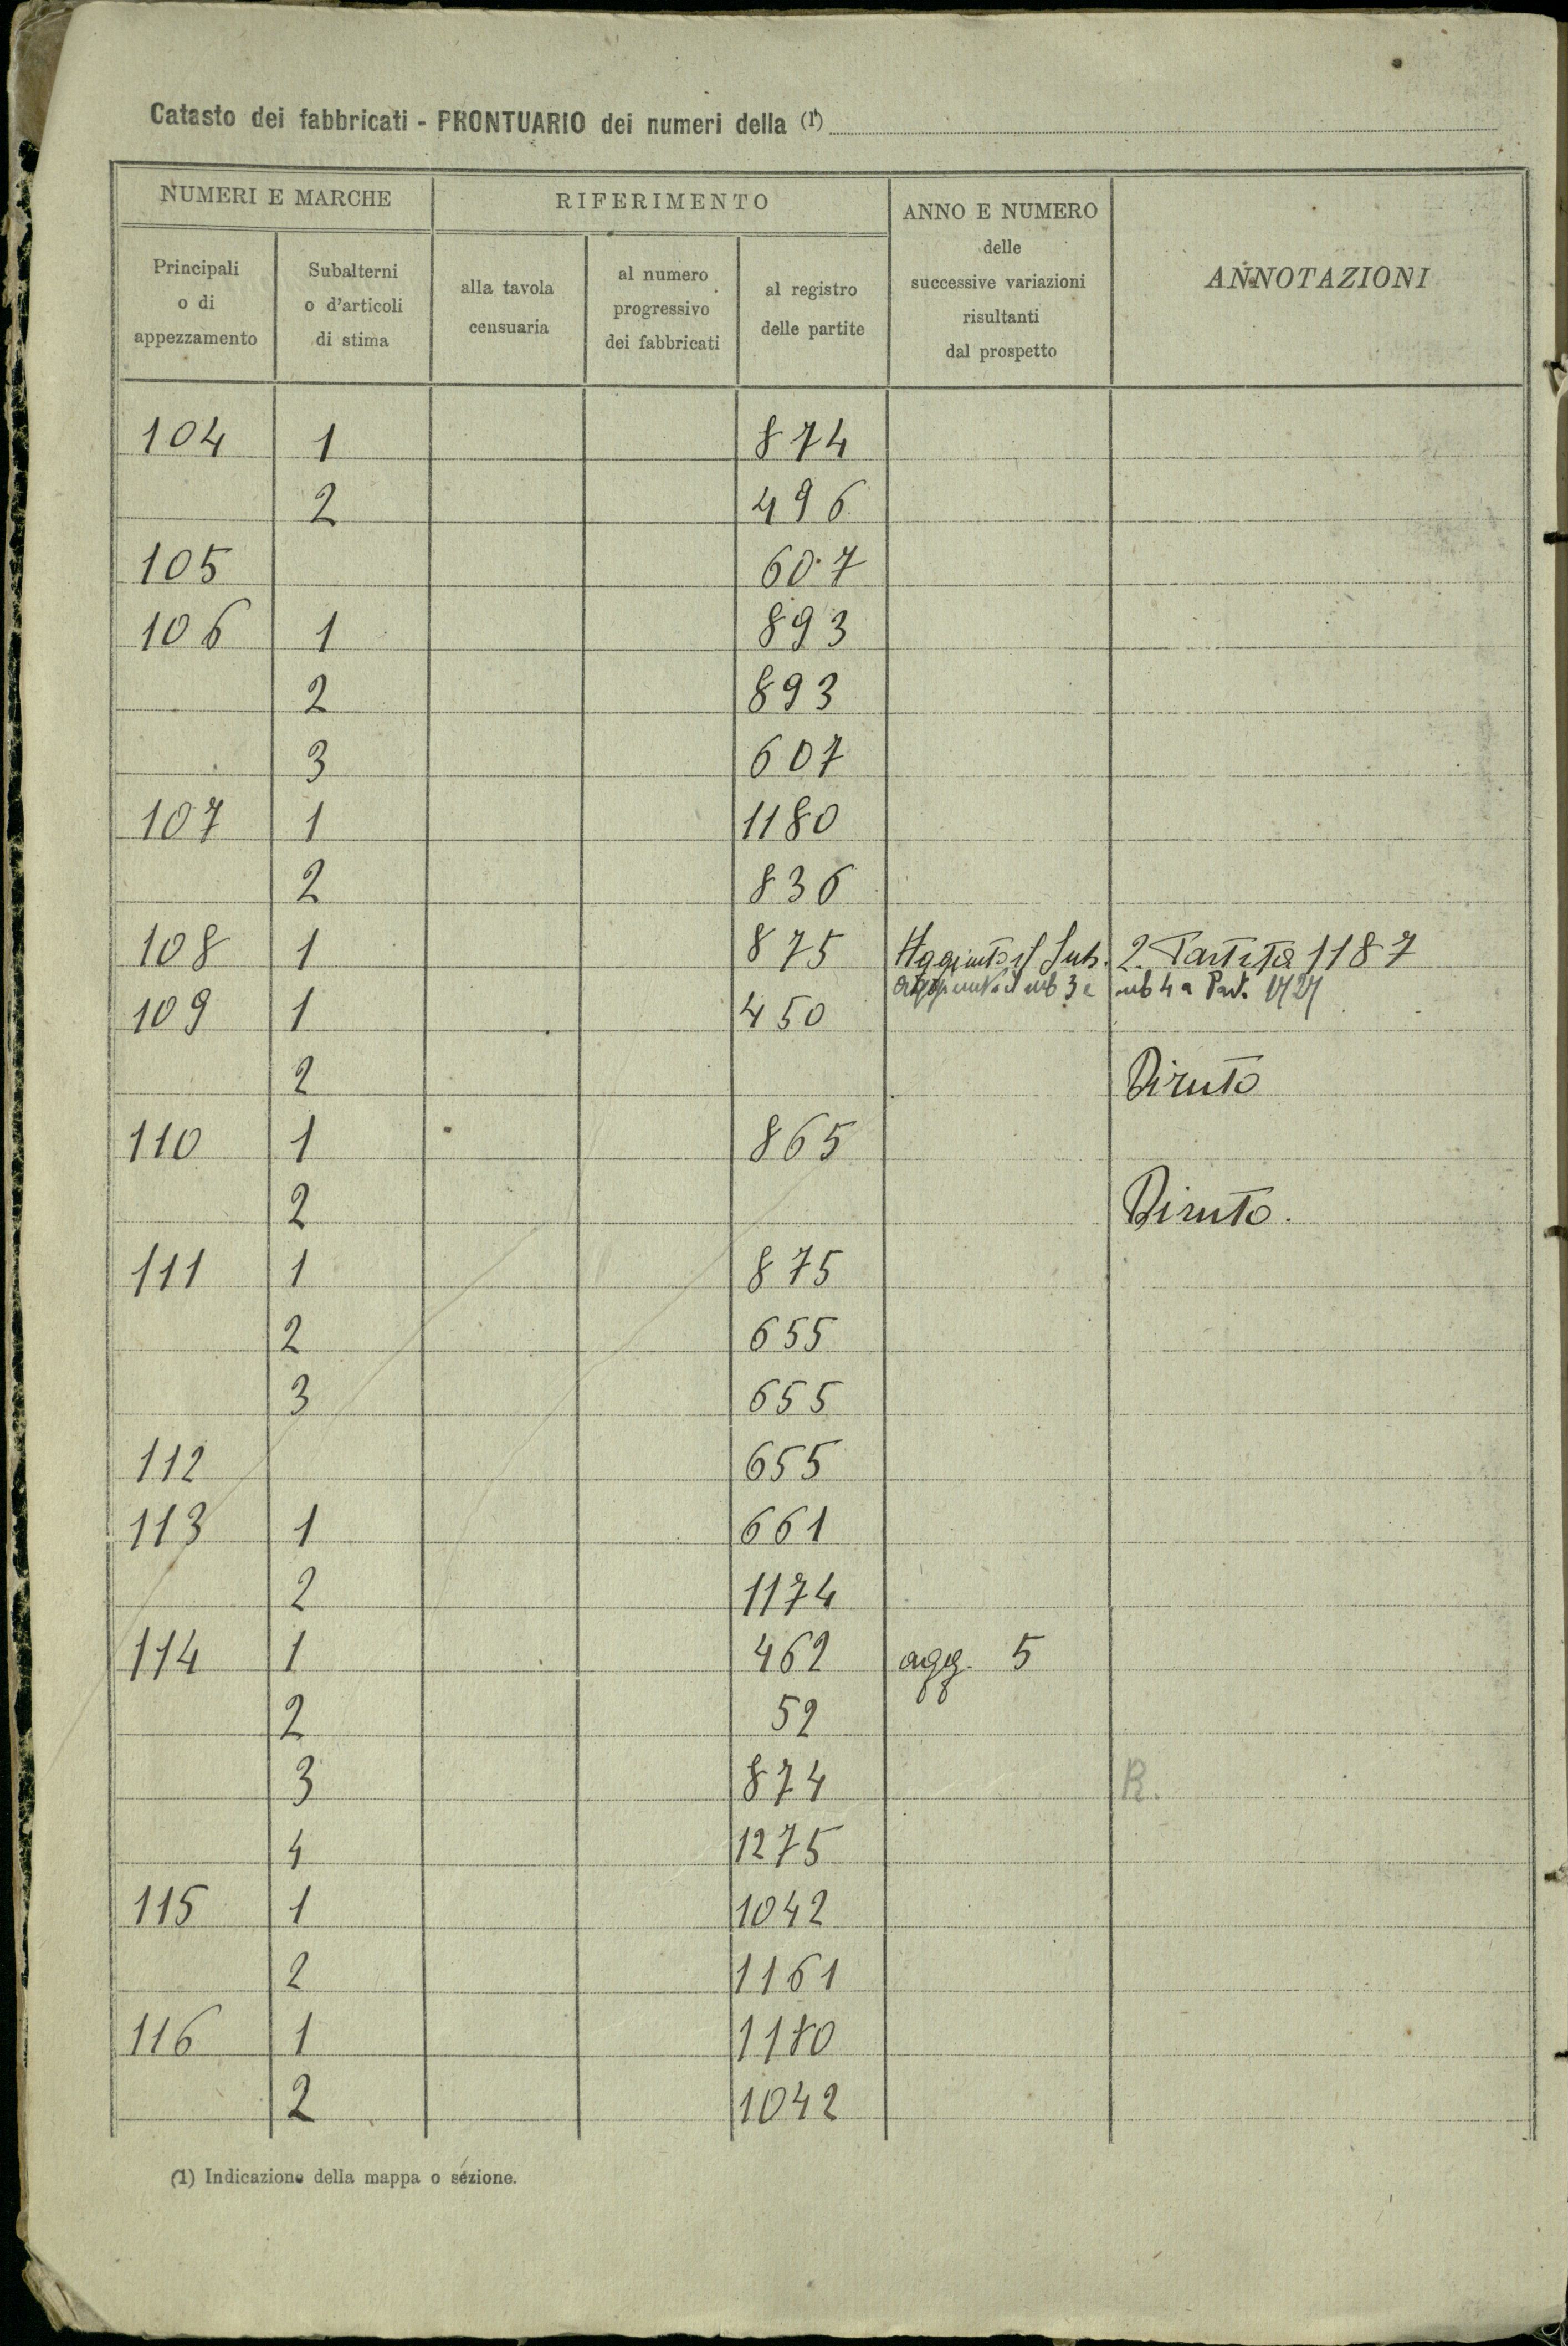 Catasto dei fabbricati - PRONTUARIO dei numeri della (1)
NUMERI E MARCHE
RIFERIMENTO
ANNO E NUMERO
delle
successive variazioni
risultanti
dal prospetto
ANNOTAZIONI
Principali
o di
appezzamento
Subalterni
o d'articoli
di stima
alla tavola
censuaria
al numero
progressivo
dei fabbricati
al registro
delle partite
104 1 874
2 496
105 607
106 1 893
2 893
3 607
107 1 1180
2 836
108 1 875 Aggiunto il Sub. 2 Partita 1187
sub 3 e sub 4 a Part.
109 1 450
2 Diruto
110 1 865
2 Diruto.
111 1 875
2 655
3 655
112 655
113 1 661
2 1174
114 1 462 agg. 5
2 52
3 874 R.
4 1275
115 1 1042
2 1161
116 1 1180
2 1042
(1) Indicazione della mappa o sezione.